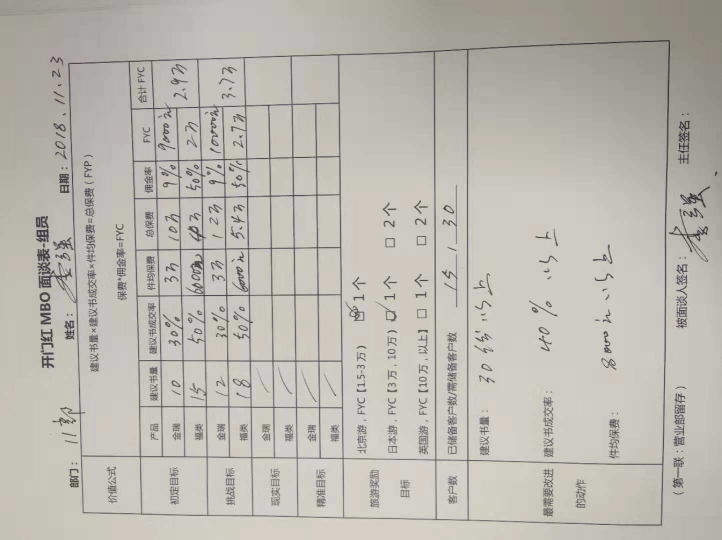 开门红 MBO 面谈表-组员
部门：川部 姓名：李强 日期：2018.11.23
价值公式 建议书量×建议书成交率×件均保费=总保费（FYP）
保费*佣金率=FYC
产品 建议书量 建议书成交率 件均保费 总保费 佣金率 FYC 合计 FYC
初定目标 金瑞 10 30% 3万 10万 9% 9000元 2.9万
福类 15 50% 6000元 万 50% 2万
挑战目标 金瑞 12 30% 3万 12万 9% 10000元 3.7万
福类 18 50% 6000元 5.4万 50% 2.7万
现实目标 金瑞 /
福类 /
精准目标 金瑞 /
福类 /
旅游奖励 北京游，FYC【1.5-3万） ☑ 1个
目标 日本游，FYC【3万，10万） ☑ 1个 □ 2个
英国游，FYC【10万，以上】 □ 1个 □ 2个
客户数 已储备客户数/需储备客户数 15 / 30
最需要改进的动作 建议书量：30份以上
建议书成交率：40%以上
件均保费：8000元以上
（第一联：营业部留存） 被面谈人签名：李强 主任签名：